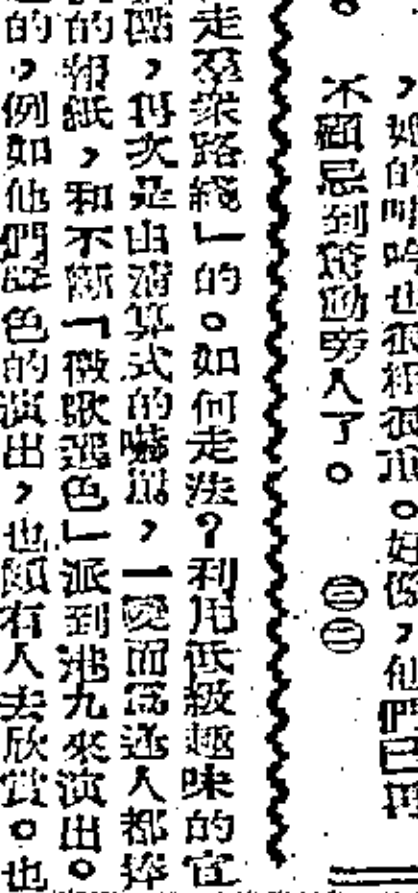 ，她的呻吟也很粗很重。好像，他們已再
不顧忌到驚動旁人了。 ㊂㊁
走羣衆路綫」的。如何走法？利用低級趣味的宣
，再次是由清算式的嚇黑，一變而爲逢人都捧
的報紙，和不斷「徵歌選色」派到港九來演出。
的，例如他們聲色的演出，也頗有人去欣賞。也